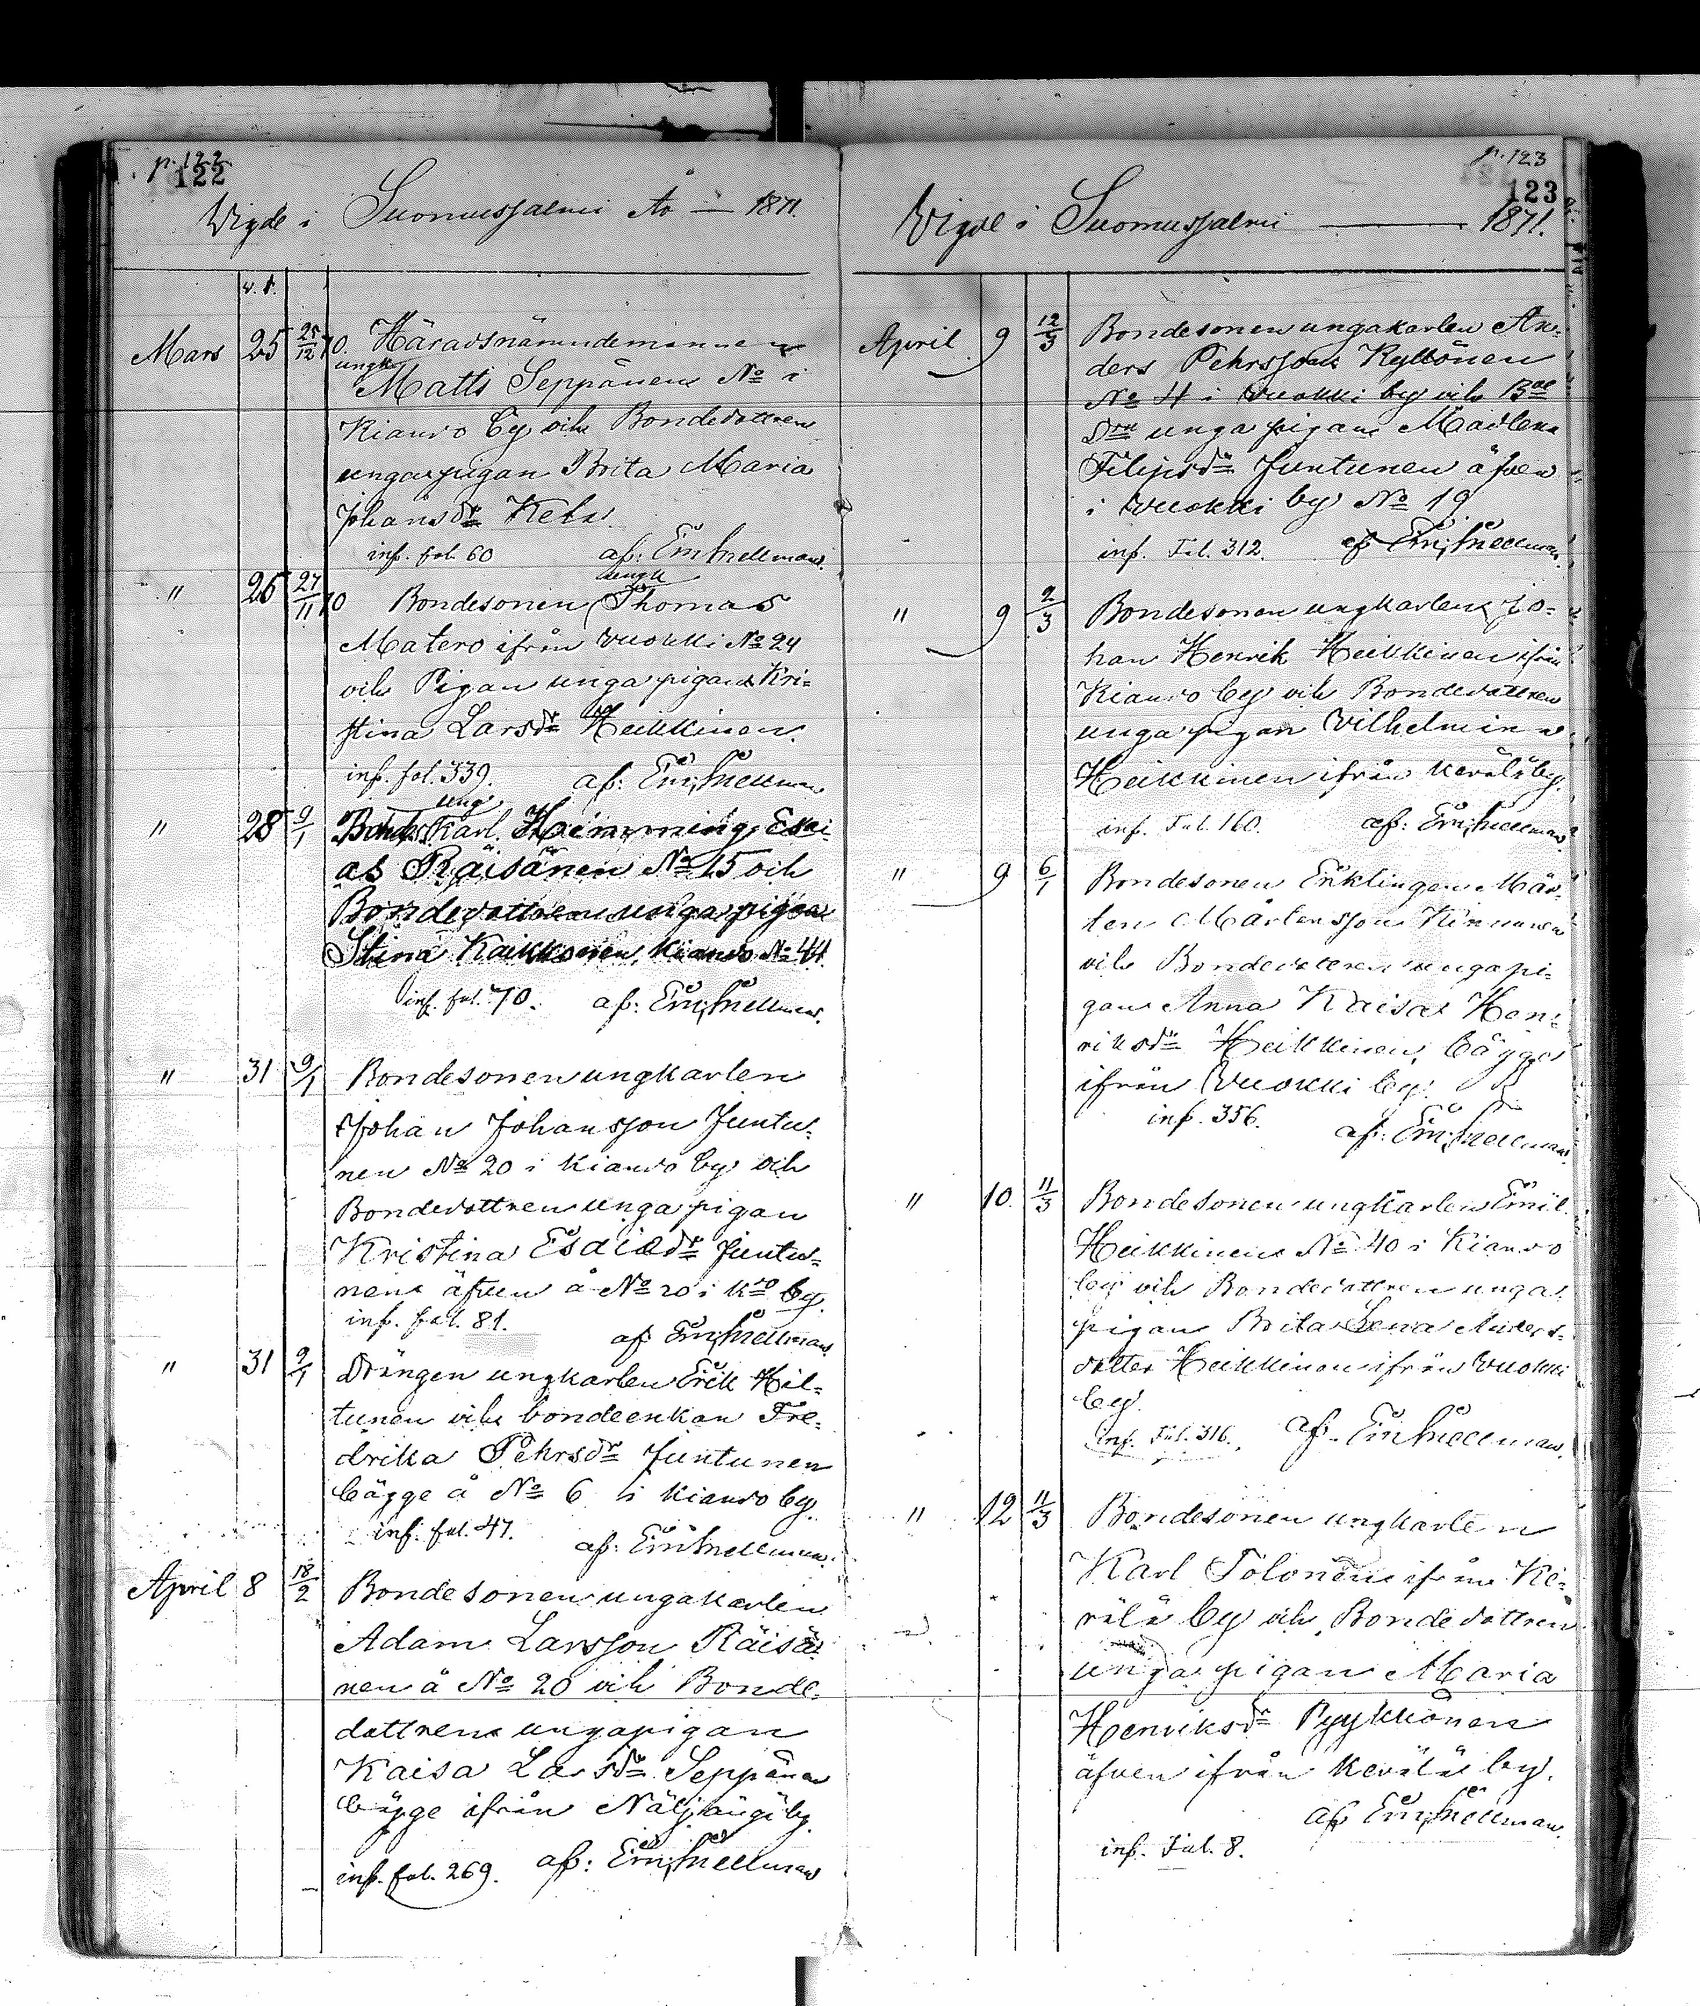 p. 122
122
Vigde i Suomussalmi År — 1871.
v. d.
Mars 25 25/12 70. Häradsnämndemannen
ungk.
Matts Seppänen No i
Kiando by och Bondedottren
unga pigan Brita Maria
Johansdr Kela
inf. fol. 60 af: Em. Snellman.
" 26 27/11 70 Bondesonen Thomas
ungk
Matero ifrån Vuokki No 24
och Pigan unga pigan Kri-
stina Larsdr Heikkinen.
inf. fol. 339. af: Em. Snellman
" 28 9/1 Bondes. Karl. Hemming Esai
ung
as Räisänen No 15 och
Bondedottren unga pigan
Stina Kaikkonen, Kiando No 44
inf. fol. 70. af: Em. Snellman.
" 31 9/1 Bondesonen ungkarlen
Johan Johansson Juntu-
nen No 20 i Kiando by och
Bondedottren unga pigan
Kristina Esaiædr Juntu-
nen äfven å No 20 i Kdo by.
inf. fol. 81. af Em. Snellman
" 31 9/1 Drängen ungkarlen Erik Hil-
tunen och bondeenkan Fre-
drika Pehrsdr Juntunen
bägge å No 6 i Kiando by.
inf. fol. 47. af: Em. Snellman.
April 8 18/2 Bondesonen ungakarlen
Adam Larsson Räisä-
nen å No 20 och Bonde-
dottren ungapigan
Kaisa Larsdr Seppänen
bägge ifrån Näljängä by.
inf. fol. 269. af: Em. Snellman
p. 123
123
Vigde i Suomussalmi — 1871.
April 9 12/3 Bondesonen ungakarlen An-
ders Pehrsson Kyllönen
No 4 i Vuokki by och Bde
drn unga pigan Madlena
Filipsdr Juntunen äfven
i Vuokki by No 19
inf. Fol. 312. af Em. Snellman.
" 9 2/3 Bondesonen ungkarlen Jo-
han Henrik Heikkinen ifrån
Kiando by och Bondedottren
unga pigan Vilhelmina
Heikkinen ifrån Kerälä by.
inf. Fol. 160. af: Em. Snellman
" 9 6/1 Bondesonen Enklingen Mår-
ten Mårtensson Kinnunen
och Bondedottren unga pi-
gan Anna Kaisa Hen-
riksdr Heikkinen, bägge
ifrån Vuokki by.
inf. 356. af: Em. Snellman.
" 10. 11/3 Bondesonen ungkarlen Emil
Heikkinen No 40 i Kiando
by och Bondedottren unga
pigan Brita Lena Anders-
dotter Heikkinen ifrån Vuokki
by.
inf. Fol. 316. af. Em Snellman.
" 12 11/3 Bondesonen ungkarlen
Karl Tolonen ifrån Ke-
rälä by och Bondedottren
unga pigan Maria
Henriksdr Pyykkönen
äfven ifrån Kerälä by.
af Em. Snellman.
inf. Fol. 8.